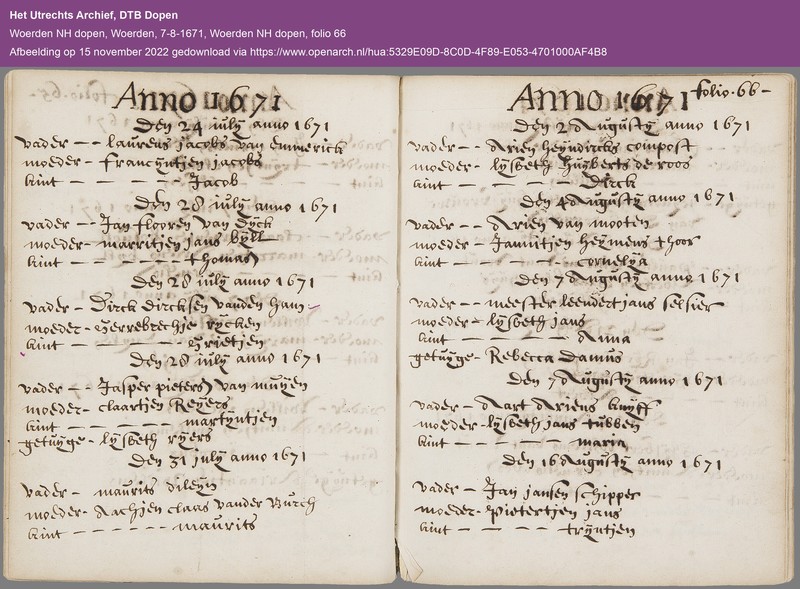 Het Utrechts Archief, DTB Dopen
Woerden NH dopen, Woerden, 7-8-1671, Woerden NH dopen, folio 66
Afbeelding op 15 november 2022 gedownload via https://www.openarch.nl/hua:5329E09D-8C0D-4F89-E053-4701000AF4B8
Anno 1671
Den 24 july anno 1671
vader - - laurens jacobs van Emmerick
moeder - francyntjen jacobs
kint - - - - - Jacob
Den 28 july anno 1671
vader - - Jan flooren van Dyck
moeder - marritjen jans byll
kint - - - - - thomas
Den 28 july anno 1671
vader - Dirck Dircksen vanden ham
moeder - Gerrebrechje rycken
kint - - - - - Grietjen
Den 28 july anno 1671
vader - - Jasper pieters van muyen
moeder - claartjen Reyers
kint - - - - - martyntjen
getuyge - lysbeth ryers
Den 31 july anno 1671
vader - maurits
moeder - Aachjen claas vander Burch
kint - - - - - maurits
folio · 66 -
Anno 1671
Den 2 Augusty anno 1671
vader - - Arien heyndricks compost
moeder - lysbeth huyberts de roos
kint - - - - Dirck
Den 4 Augusty anno 1671
vader - - Arien van nooten
moeder - Jannitjen heymens thoor
kint - - - - - cornelya
Den 7 Augusty anno 1671
vader - - meester leendert jans selsier
moeder - lysbeth jans
kint - - - - - Anna
getuyge - Rebecca Damus
Den 7 Augusty anno 1671
vader - - Aart Ariens knyff
moeder - lysbeth jans tubben
kint - - - - - maria
Den 16 Augusty anno 1671
vader - - Jan jansen schipper
moeder - pietertjen jans
kint - - - - - tryntjen